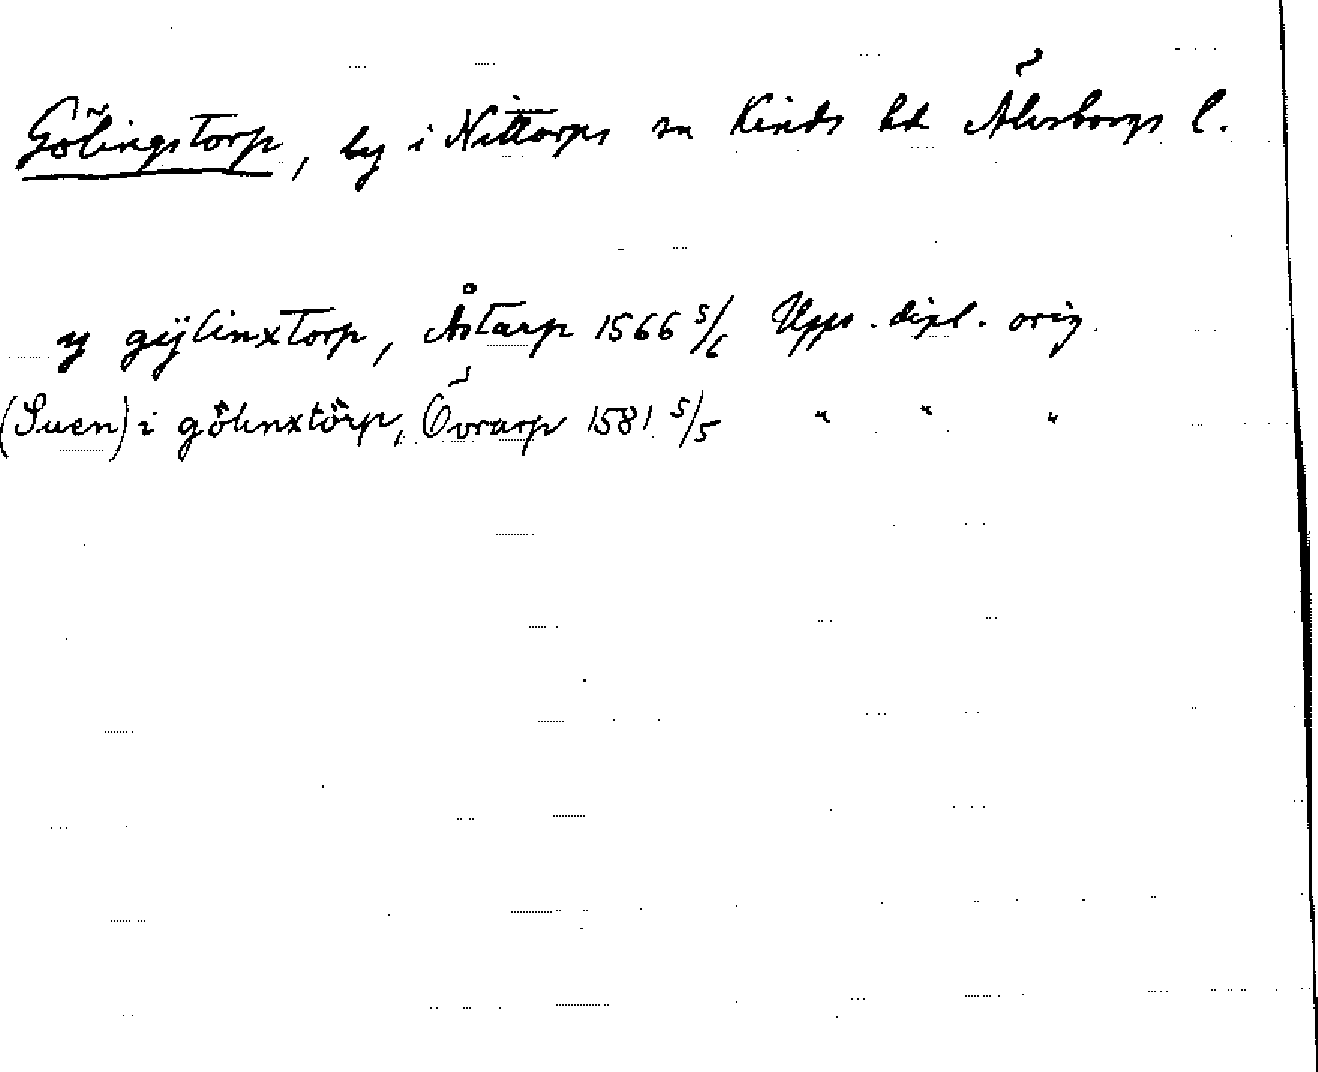 Gölingstorp, by i Nittorps sn Kinds hd Älvsborgs l.
y gÿlinxtorp, Åstarp 1566 5/6 Upps. dipl. orig.
(Suen) i gölinxtörp, Övrarp 1581 5/5 " " "